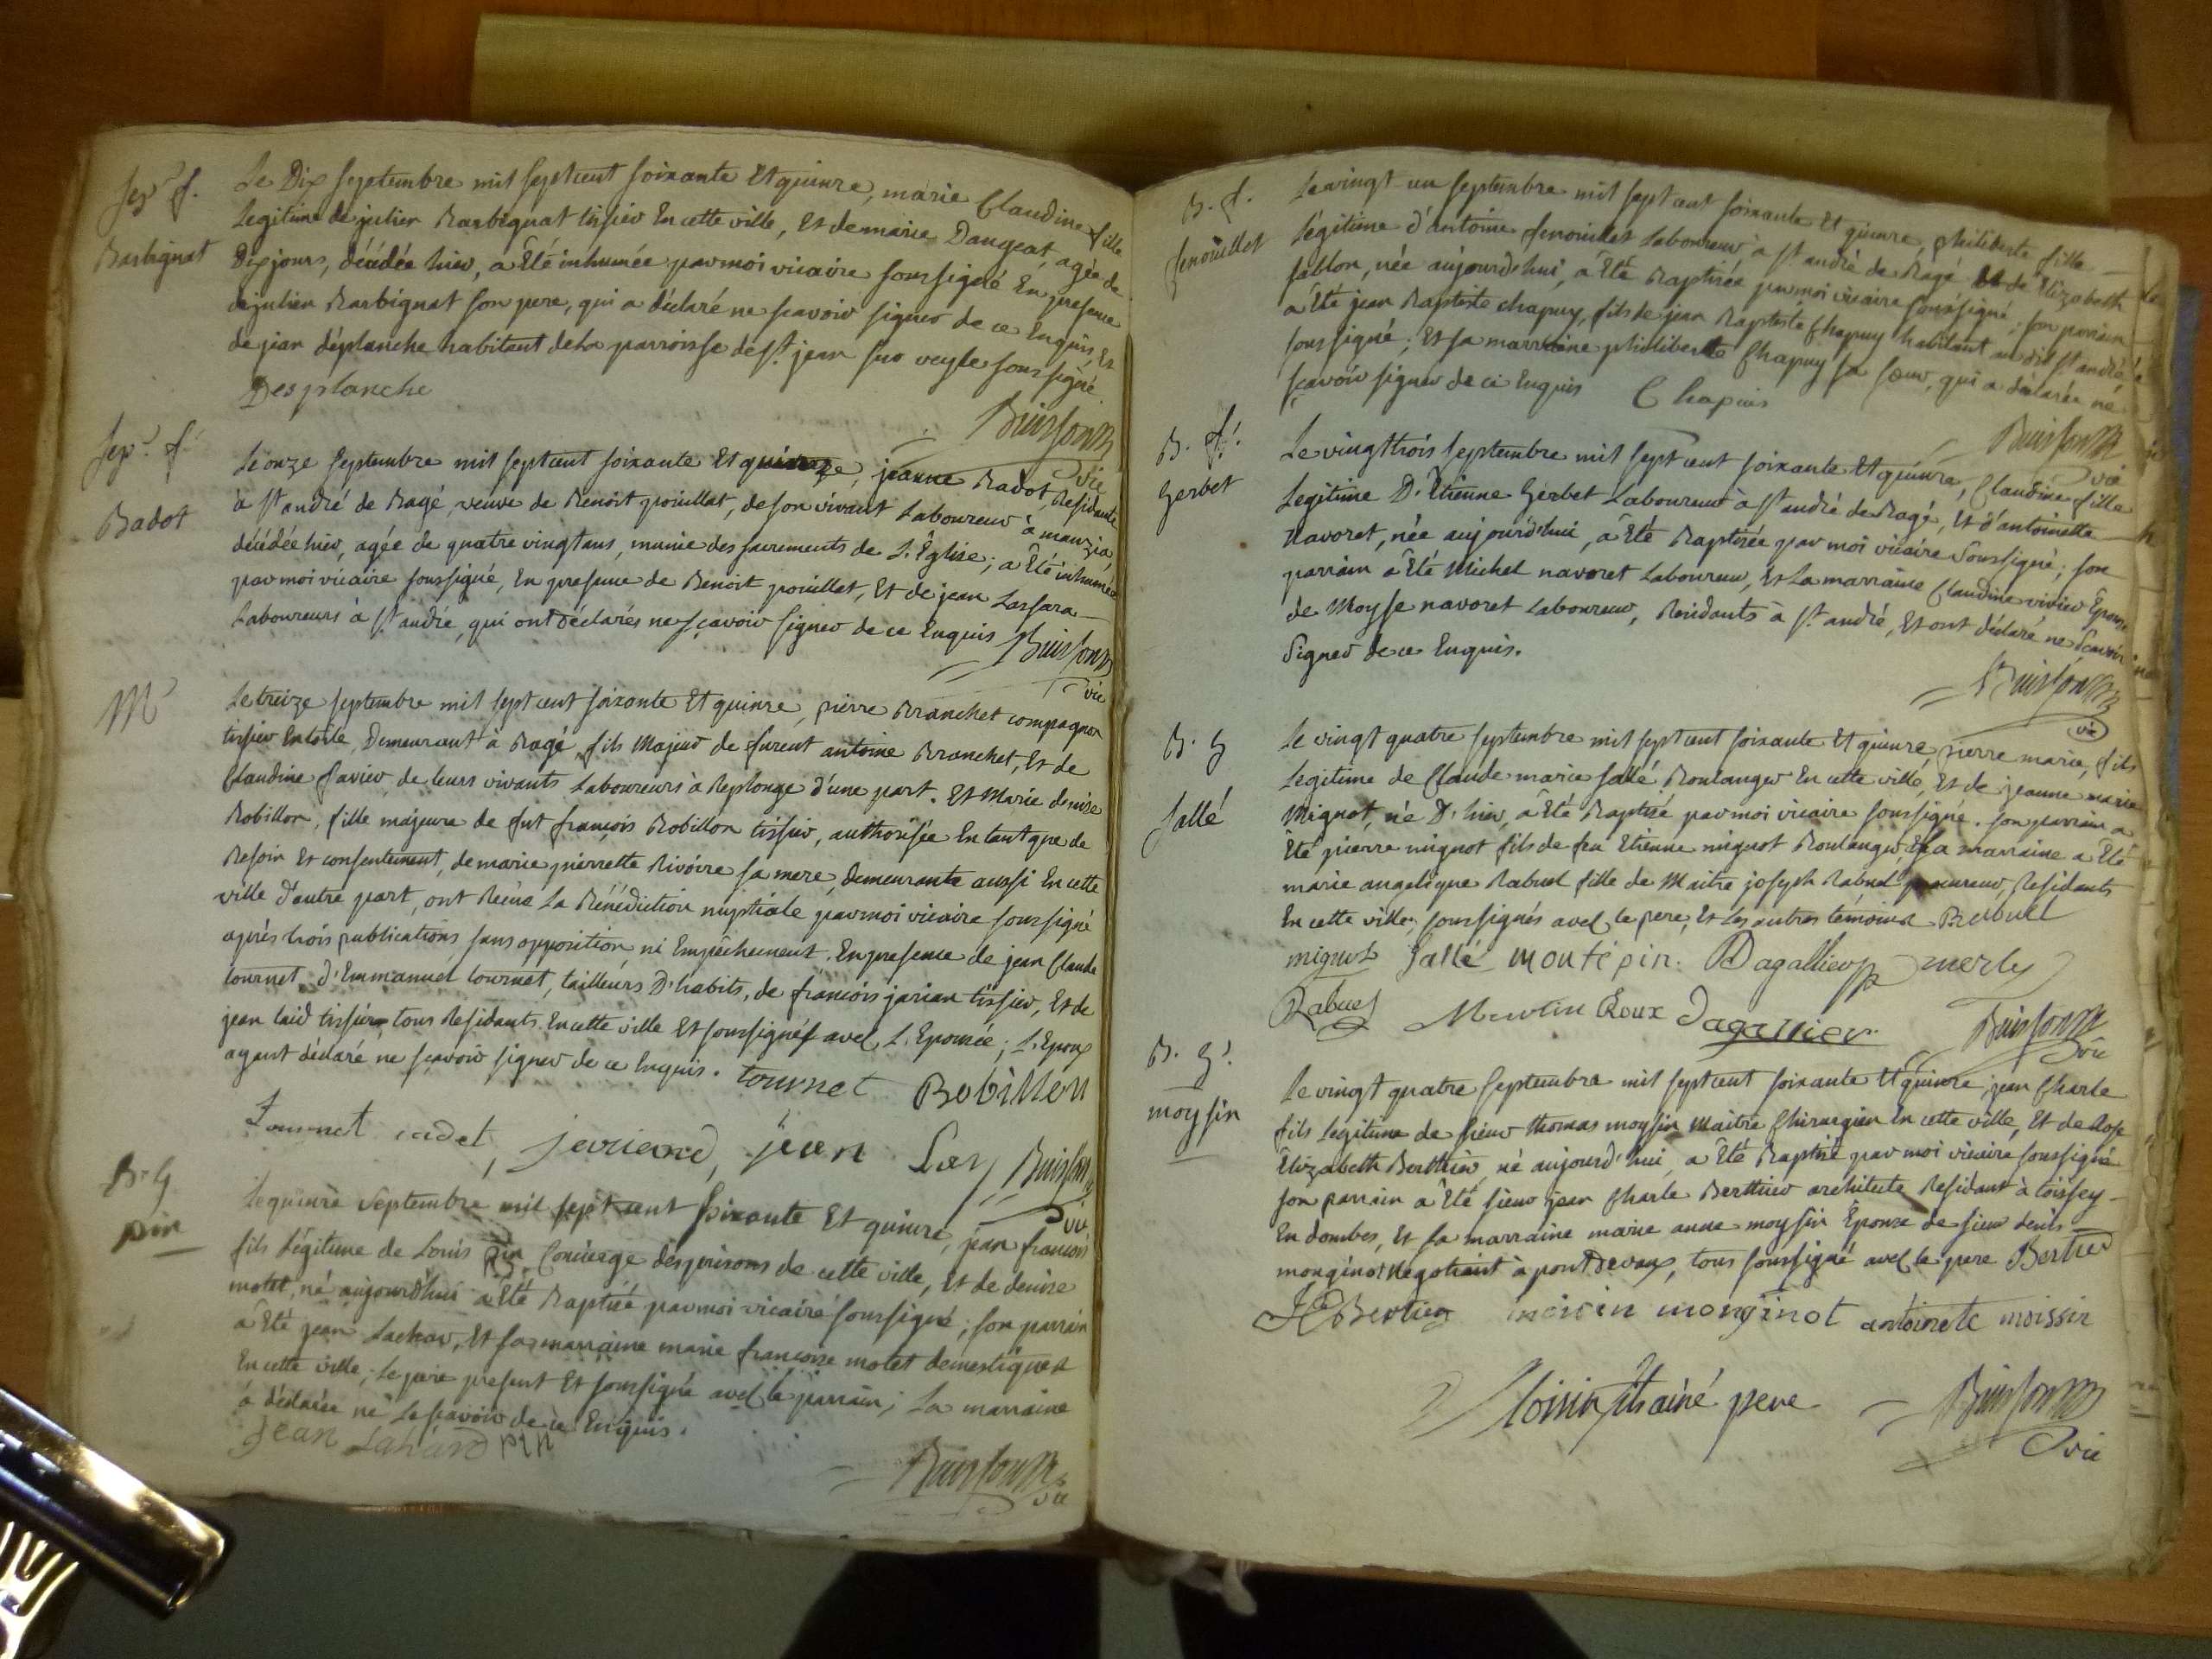 Sep.r f.
Barbignat
Le Dix septembre mil sept cent soixante Et quinze, marie Claudine fille
Legitime de julien Barbignat tissier En cette ville, Et de marie Dangeat, agée de
Dix jours, décédée hier, a Eté inhumée par moi vicaire soussigné En presence
de julien Barbignat son pere, qui a déclaré ne scavoir signer de ce Enquis, Et
de jean déplanche habitant de La parroisse de St. jean sur veyle soussigné
Desplanche
Buisson
vic
Sep.r f.
Badot
Le onze septembre mil sept cent soixante Et quinze, jeanne Badot, Residante
à St andré de Bagé, veuve de Benoit pouillat, de son vivant Laboureur à manzia,
décédée hier, agée de quatre vingt ans, munie des sacrements de L'Eglise; a Eté inhumée
par moi vicaire soussigné, En presence de Benoit pouillat, Et de jean Lassara
Laboureurs à St. andré, qui ont Déclarés ne sçavoir signer de ce Enquis
Buisson
vic
M
Le treize septembre mil sept cent soixante Et quinze, pierre Branchet compagnon
tissier En toile, Demeurant à Bagé, fils Majeur de furent antoine Branchet, Et de
Claudine favier, de leurs vivants Laboureurs à Replonge d'une part. Et Marie denise
Robillon, fille majeure de fut françois Robillon tissier, authorisée En tant que de
Besoin Et consentement, de marie pierrette Rivoire sa mere, Demeurante aussi En cette
ville d'autre part, ont Reçus La Bénédiction nuptiale par moi vicaire soussigné
après trois publications, sans opposition, ni Empêchement. En presence de jean Claude
tournet, d'Emmanuel tournet, tailleurs D'habits, de françois jarian tissier, Et de
jean laid tissier, tous Residants En cette ville Et soussignés avec L'Epousée; L'Epoux
ayant déclaré ne sçavoir signer de ce Enquis. tournet Bobillon
Tournet cadet, jean Las Buisson
vic
B. G
pin
Le quinze septembre mil sept cent soixante Et quinze, jean francois
fils Légitime de Louis pin Concierge des prisons de cette ville, Et de denise
motet, né aujourd'hui a Eté Baptisé par moi vicaire soussigné; son parrain
a Eté jean Lachar, Et sa marraine marie francoise motet domestiques
En cette ville; Le pere present Et soussigné avec Le parrain; La marraine
a déclarée ne Le scavoir de ce Enquis.
jean pin
Buisson
vic
B. f.
fenouillet
Le vingt un septembre mil sept cent soixante Et quinze, philiberte fille
Légitime d'antoine fenouillet Laboureur à St andré de Bagé Et de Elizabeth
fablon, née aujourd'hui, a Eté Baptisée par moi vicaire soussigné; son parrain
a Eté jean Baptiste chapuy, fils de jean Baptiste Chapuy habitant au dit St andré
soussigné; Et sa marraine philiberte Chapuy sa soeur, qui a déclarée ne
sçavoir signer de ce Enquis Chapuis
Buisson
vic
B. f.
Gerbet
Le vingt trois septembre mil sept cent soixante Et quinze, Claudine fille
Legitime D'Etienne Gerbet Laboureur à St andré de Bagé, Et d'antoinette
Navoret, née aujourd'hui, a Eté Baptisée par moi vicaire soussigné; son
parrain a Eté Michel navoret Laboureur, Et La marraine Claudine vivier Epouse
de Moyse navoret Laboureur, Residants à St. andré, Et ont déclaré ne Scavoir
Signer de ce Enquis.
Buisson
vic
B. G
Sallé
Le vingt quatre septembre mil sept cent soixante Et quinze, pierre marie, fils
Legitime de Claude marie sallé Boulanger En cette ville, Et de jeanne marie
Mignot, né D'hier, a Eté Baptisé par moi vicaire soussigné. son parrain a
Eté pierre mignot fils de feu Etienne mignot Boulanger, Et sa marraine a Eté
marie angelique Rabuel fille de Maitre joseph Rabuel procureur, Residants
En cette ville, soussignés avec Le pere, Et Les autres témoins Rabuel
mignot Sallé montépin. Dagallier merle
Rabuel Martin Roux Dagallier
Buisson
vic
B. G.
moysin
Le vingt quatre septembre mil sept cent soixante Et quinze, jean Charle
fils Legitime de sieur thomas moysin Maitre Chirurgien En cette ville, Et de Rose
Elizabeth Berthier, né aujourd'hui, a Eté Baptisé par moi vicaire soussigné
son parrain a Eté sieur jean Charle Berthier architecte Residant à toissey
En dombes, Et sa marraine marie anne moysin Epouze de sieur denis
monginot Négotiant à pont de vaux, tous soussigné avec Le pere Bertier
Bertier moisin monginot antoinete moissin
Moisin fils ainé pere
Buisson
vic